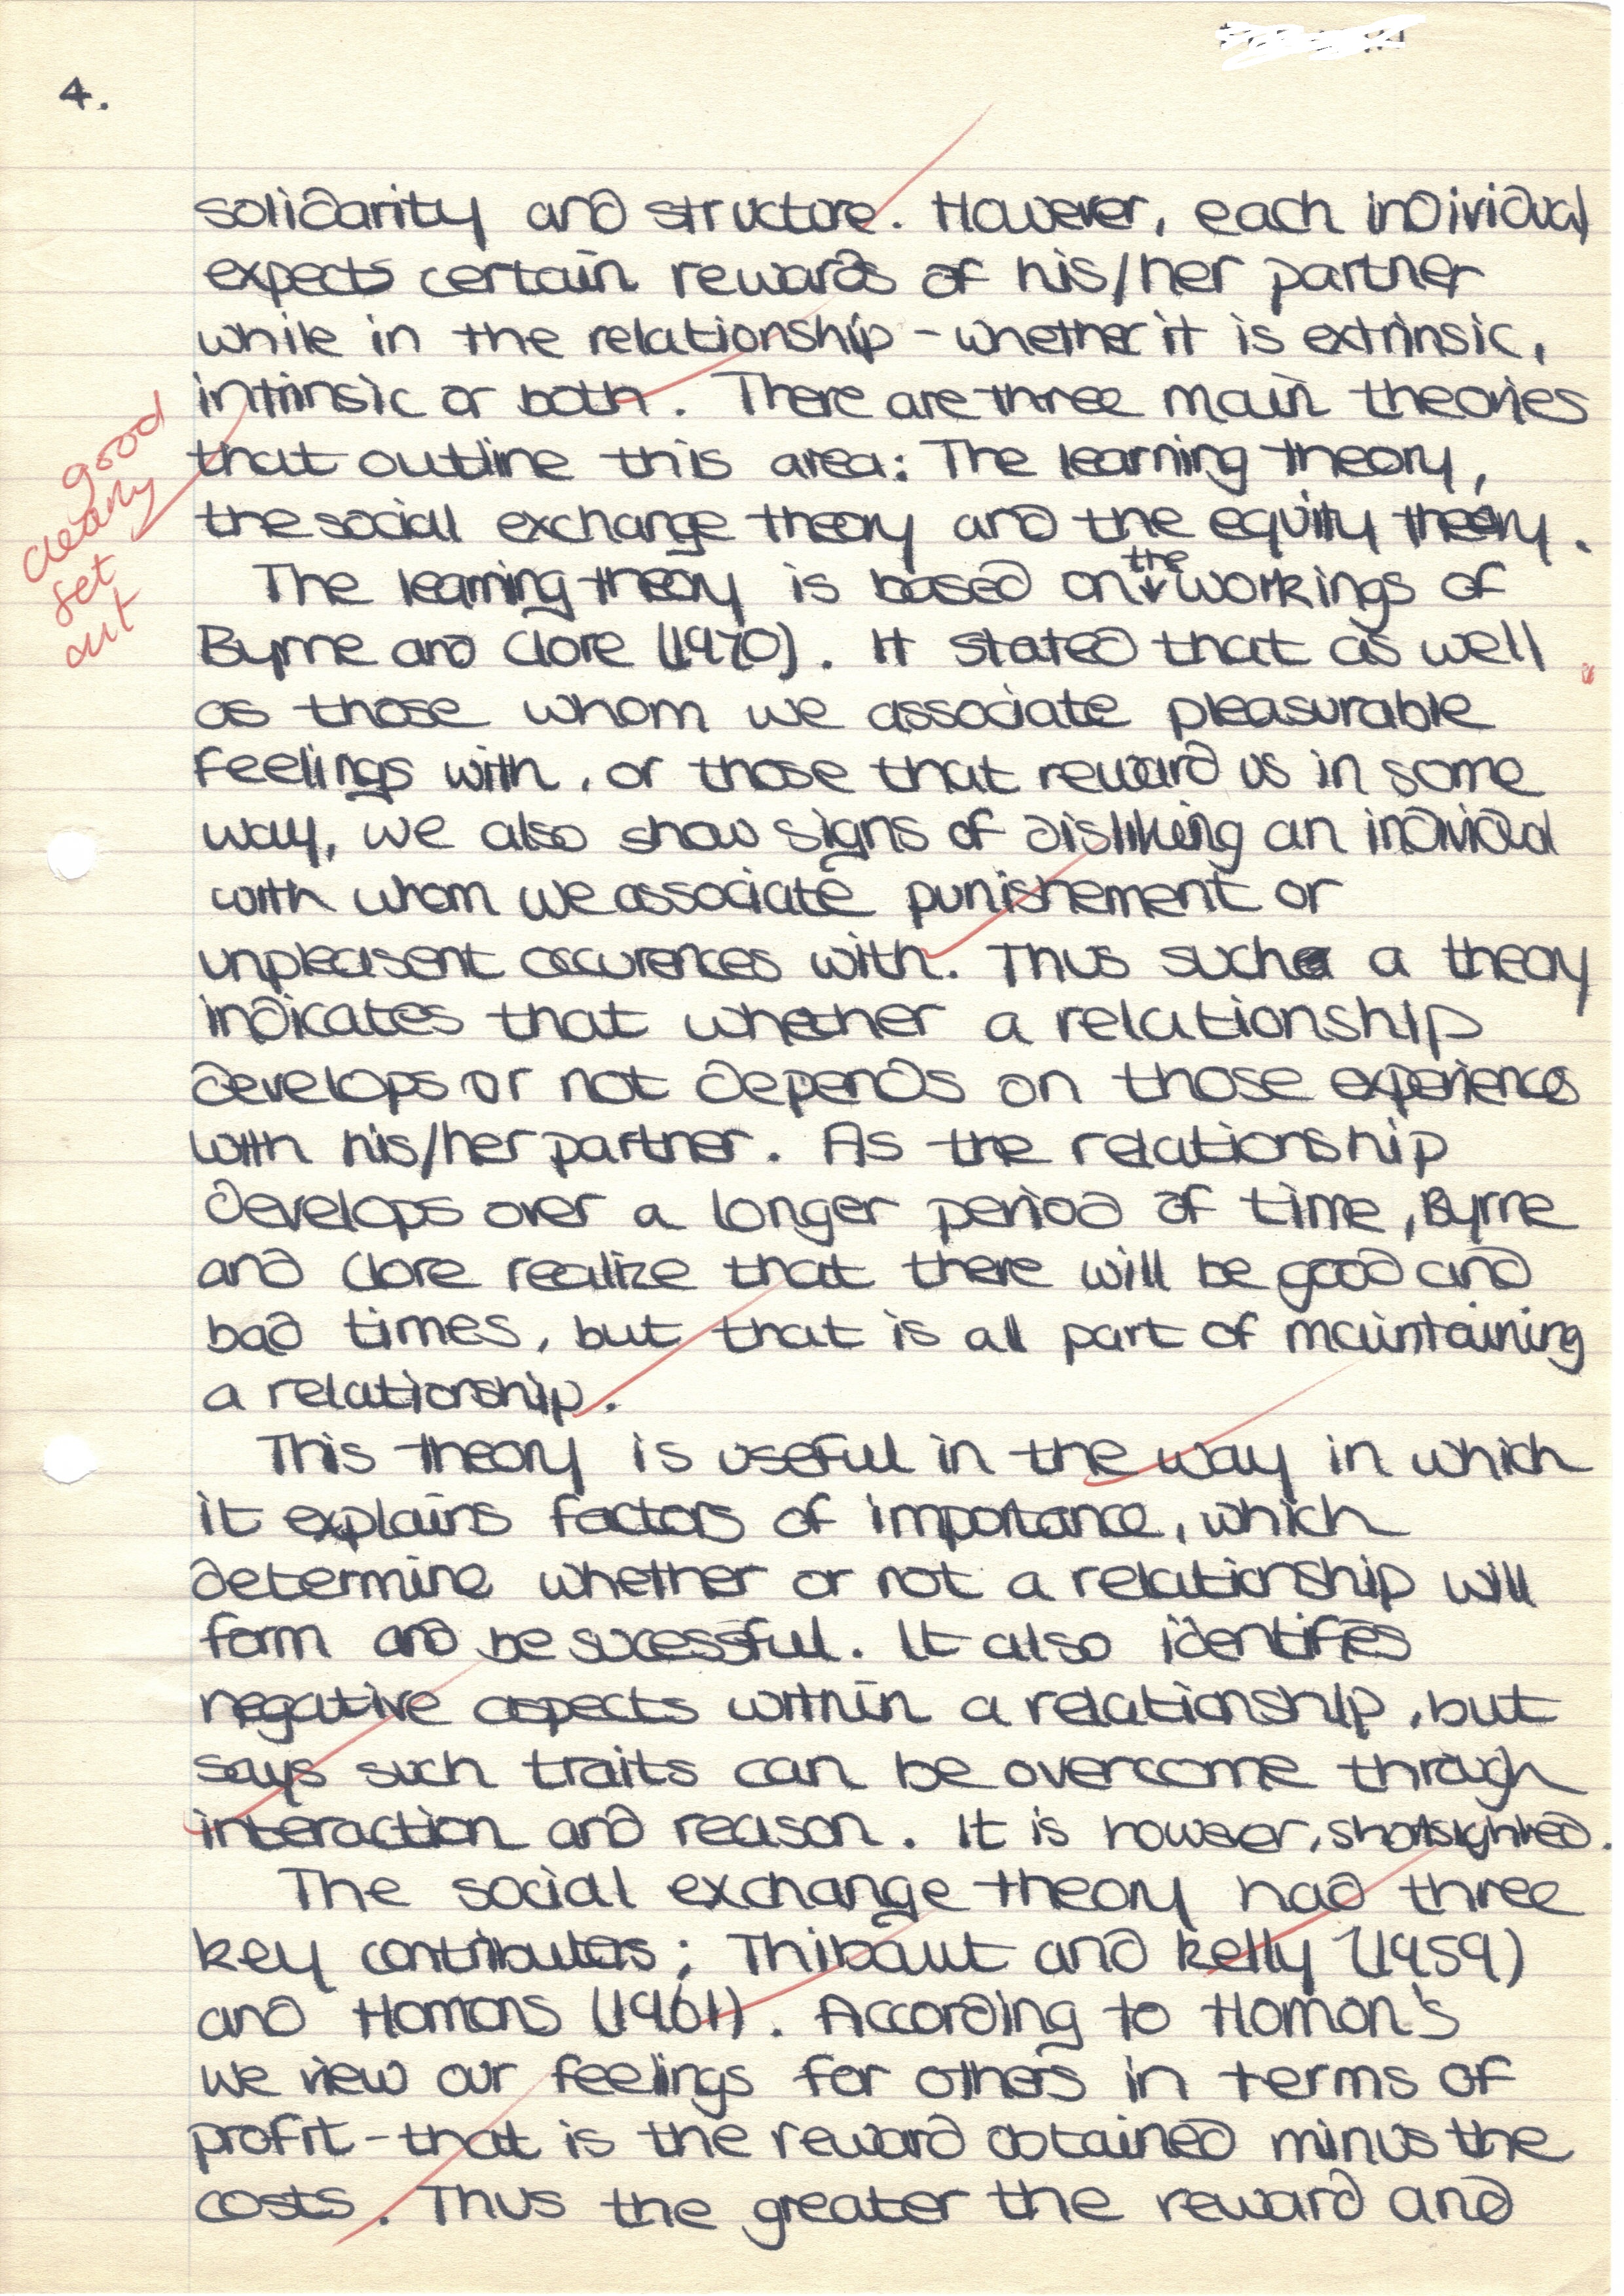 4.
solidarity and structure. However, each individual
expects certain rewards of his/her partner
while in the relationship - whether it is extrinsic,
intrinsic or both. There are three main theories
that outline this area: The learning theory,
the social exchange theory and the equity theory.
good
clearly
set
out
The learning theory is based on the workings of
Byrne and Clore (1970). It stated that as well
as those whom we associate pleasurable
feelings with, or those that reward us in some
way, we also show signs of disliking an individual
with whom we associate punishement or
unpleasent occurences with. Thus such a theory
indicates that whether a relationship
develops or not depends on those experiences
with his/her partner. As the relationship
develops over a longer period of time, Byrne
and Clore realize that there will be good and
bad times, but that is all part of maintaining
a relationship.
This theory is useful in the way in which
it explains factors of importance, which
determine whether or not a relationship will
form and be sucessful. It also identifies
negative aspects within a relationship, but
says such traits can be overcome through
interaction and reason. It is however, shortsighted.
The social exchange theory had three
key contributers; Thibaut and Kelly (1959)
and Homans (1961). According to Homon's
we view our feelings for others in terms of
profit - that is the reward obtained minus the
costs. Thus the greater the reward and